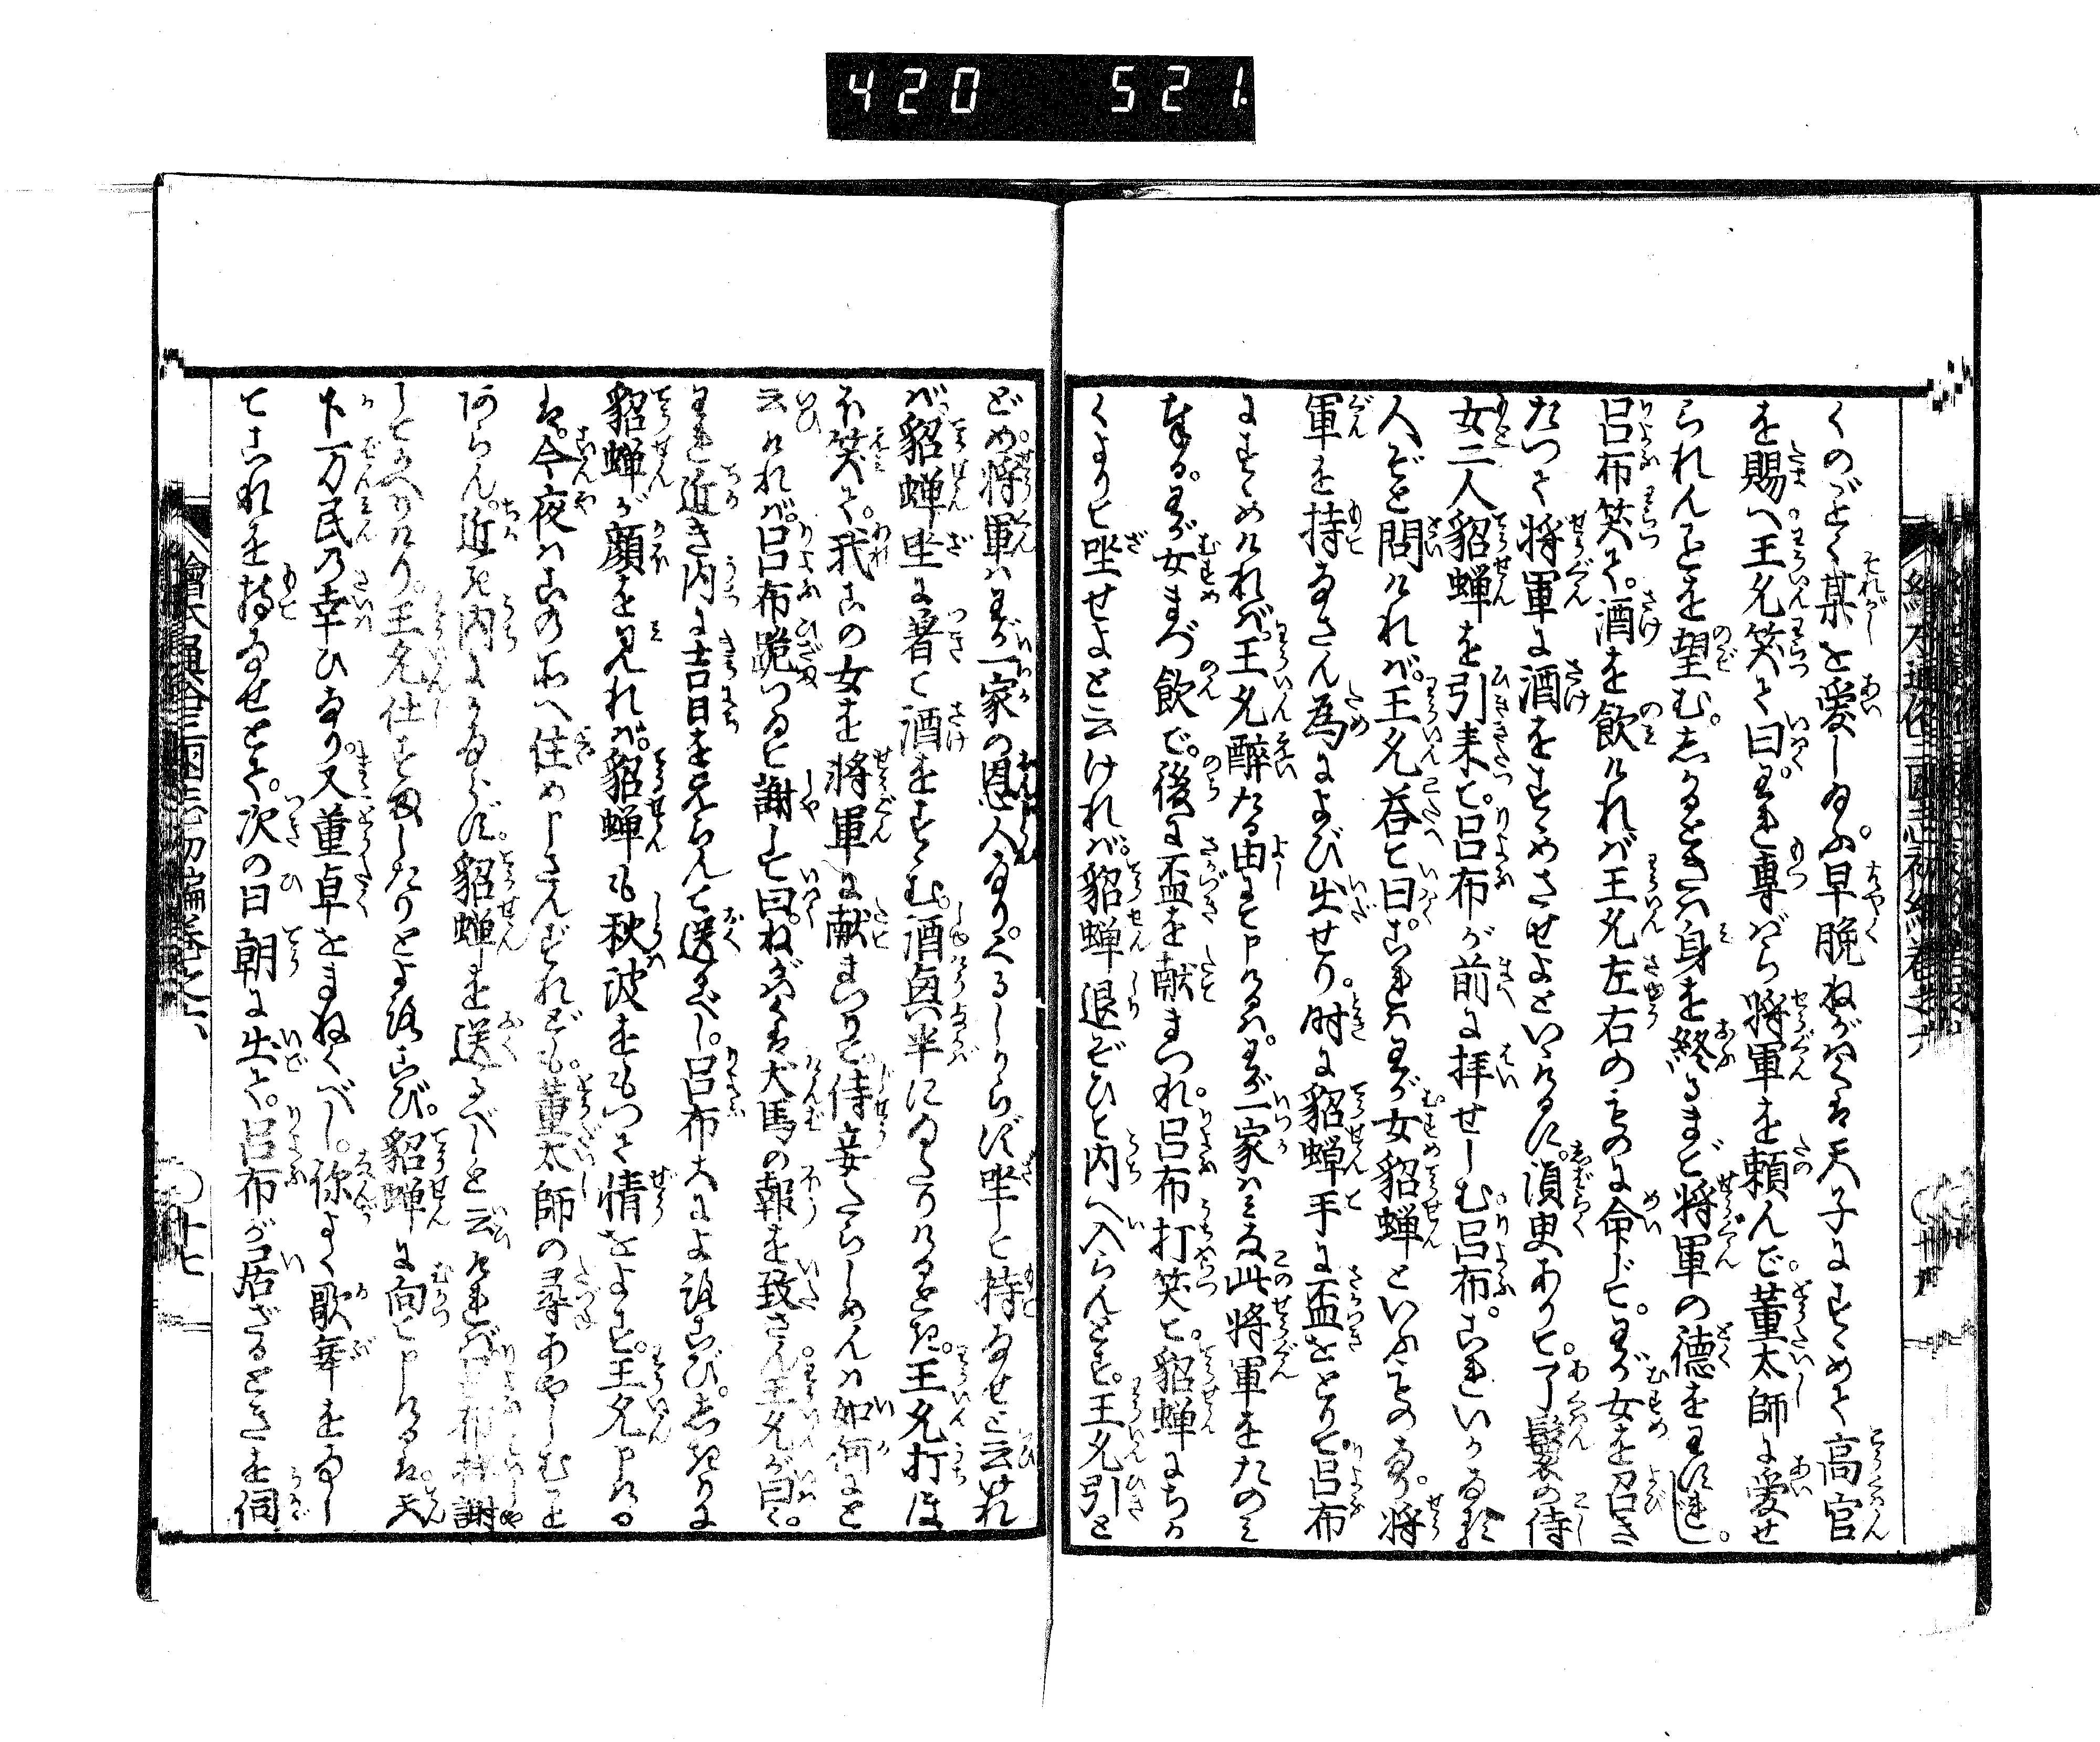 420 521.
くのごとく某を愛し玉ふ早晩ねがはくは天子にすゝめて高官
を賜へ王允笑て曰われ専ばら将軍を頼んで董太師に愛せ
られんことを望む。しかるときは身を終るまで将軍の徳をわすれじ。
呂布笑て。酒を飲ければ王允左右のものに命じて。わが女を召さ
たつて将軍に酒をすゝめさせよといへるに。須臾ありて。丫鬟の侍
女二人貂蝉を引来て呂布が前に拝せしむ呂布。これいかなる
人ぞと問ければ。王允答て曰。これはわが女貂蝉といふものなり。将
軍を持なさん為によび出せり。時に貂蝉手に盃をとりて呂布
にすゝめければ。王允酔たる由をして申けるは。わが一家はみな此将軍をたのみ
奉る。わが女まづ飲で。後に盃を献まつれ。呂布打笑て。貂蝉にちか
くよりて坐せよと云ければ。貂蝉退ぞひて内へ入らんとす。王允引と
どめ。将軍はわが一家の恩人なり。くるしからず坐して持なせと云けれ
ば。貂蝉坐に著て酒をすゝむ。酒興半になりけるとき。王允打ほ
ほ笑て。我この女を将軍に献まつりて。侍妾たらしめんは如何にと
云ければ。呂布跪づゐて謝して曰。ねがはくは犬馬の報を致さん王允が曰く。
われ近き内に吉日をえらんで送るべし。呂布大によろこび。しきりに
貂蝉が顔を見れば。貂蝉も秋波をもつて情をよす。王允申ける
は。今夜はこの所へ住め申さんずれども。董太師の尋あやしむこと
あらん。近き内にかならず。貂蝉を送るべしと云ければ呂布拝謝
してかへりけり。王允仕すましたりとよろこび。貂蝉に向て申けるは天
下万民の幸ひなり。又董卓をまねくべし。你よく歌舞をなし
てこれを持なせとて。次の日朝に出て。呂布が居ざるときを伺
繪本通俗三國志初編巻之六 〇十七